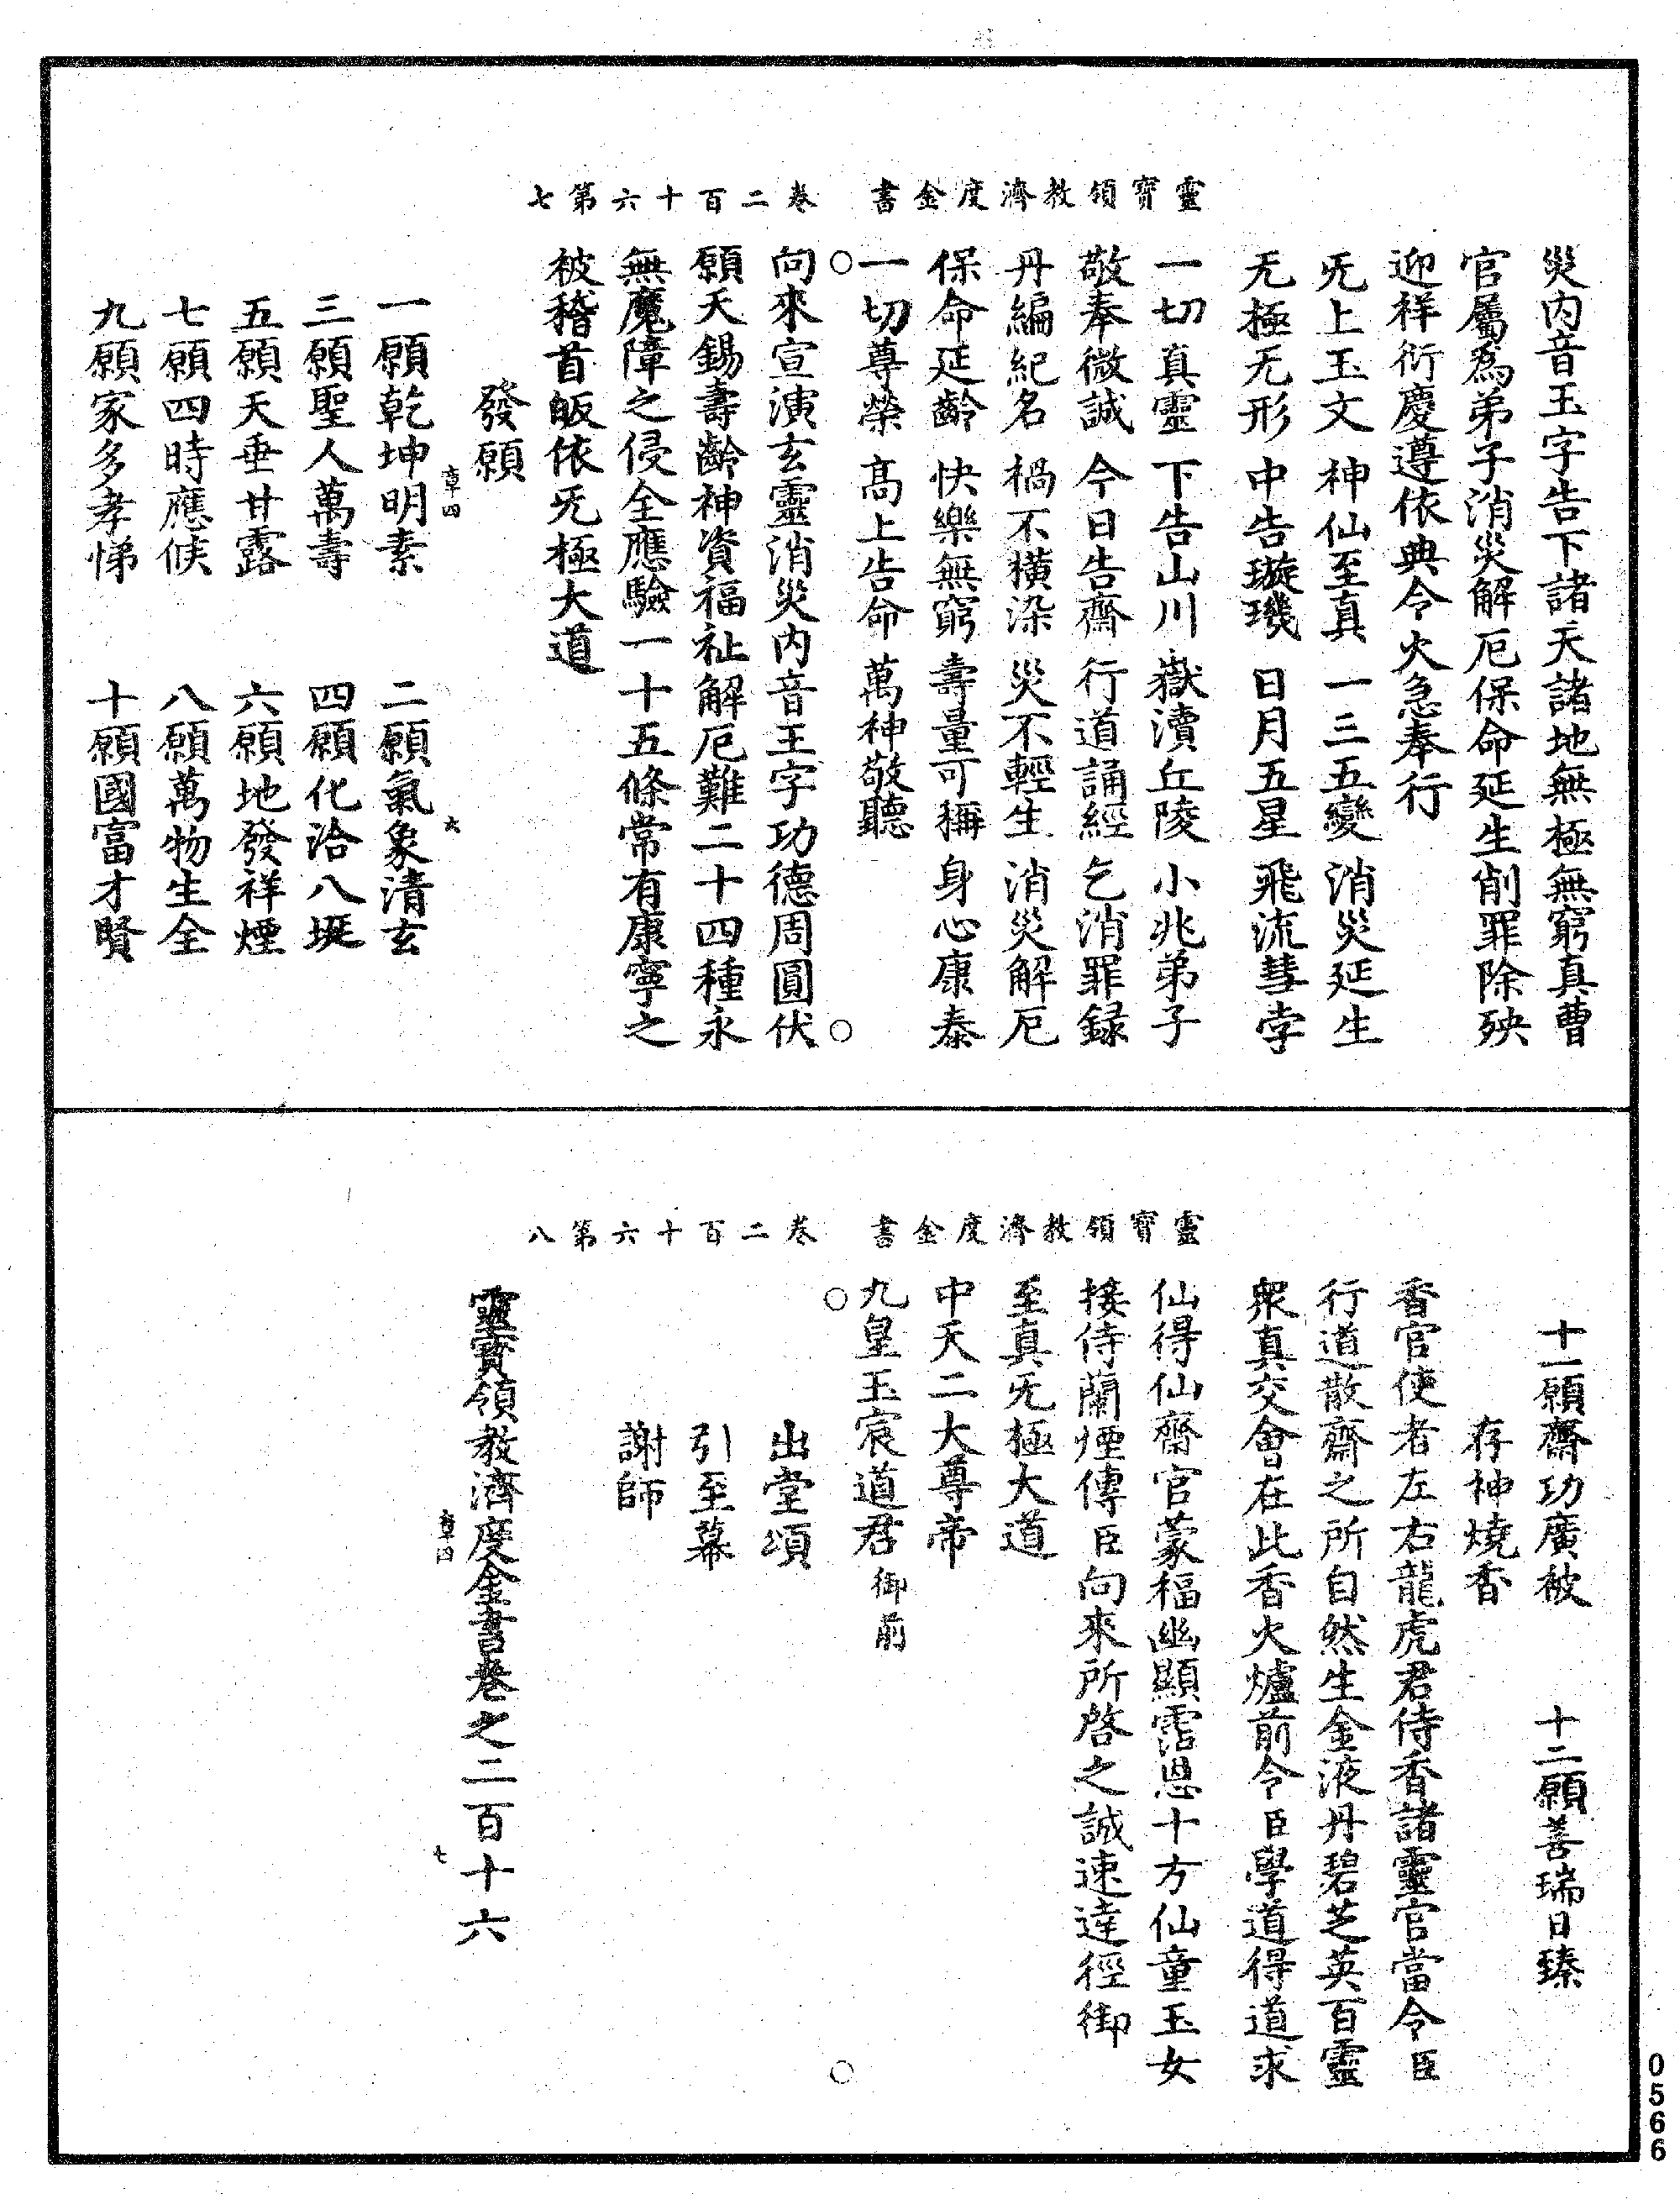 靈寶領教濟度金書　卷二百十六第七
災内音玉字告下諸天諸地無極無窮真曹
官屬爲弟子消災解厄保命延生削罪除殃
迎祥衍慶遵依典令火急奉行
旡上玉文　神仙至真　一三五變　消災延生
无極无形　中告璇璣　日月五星　飛流彗孛
一切真靈　下告山川　嶽瀆丘陵　小兆弟子
敬奉微誠　今日告齋　行道誦經　乞消罪録
丹編紀名　禍不橫染　災不輕生　消災解厄
保命延齡　快樂無窮　壽量可稱　身心康泰
一切尊榮　高上告命　萬神敬聽
○　○
向來宣演玄靈消災内音王字功德周圓伏
願天錫壽齡神資福祉解厄難二十四種永
無魔障之侵全應驗一十五條常有康寧之
被稽首皈依旡極大道
發願
章四　六
一願乾坤明素　二願氣象清玄
三願聖人萬壽　四願化洽八埏
五願天垂甘露　六願地發祥煙
七願四時應候　八願萬物生全
九願家多孝悌　十願國富才賢
靈寶領教濟度金書　卷二百十六第八
十一願齋功廣被　十二願善瑞日臻
存神燒香
香官使者左右龍虎君侍香諸靈官當令臣
行道散齋之所自然生金液丹碧芝英百靈
衆真交會在此香火爐前令臣學道得道求
仙得仙齋官蒙福幽顯霑恩十方仙童玉女
接侍蘭煙傳臣向來所啓之誠速達徑御
至真旡極大道
中天二大尊帝
九皇玉宸道君御前
○　○
出堂頌
引至幕
謝師
靈寶領教濟度金書卷之二百十六
章四　七
0566